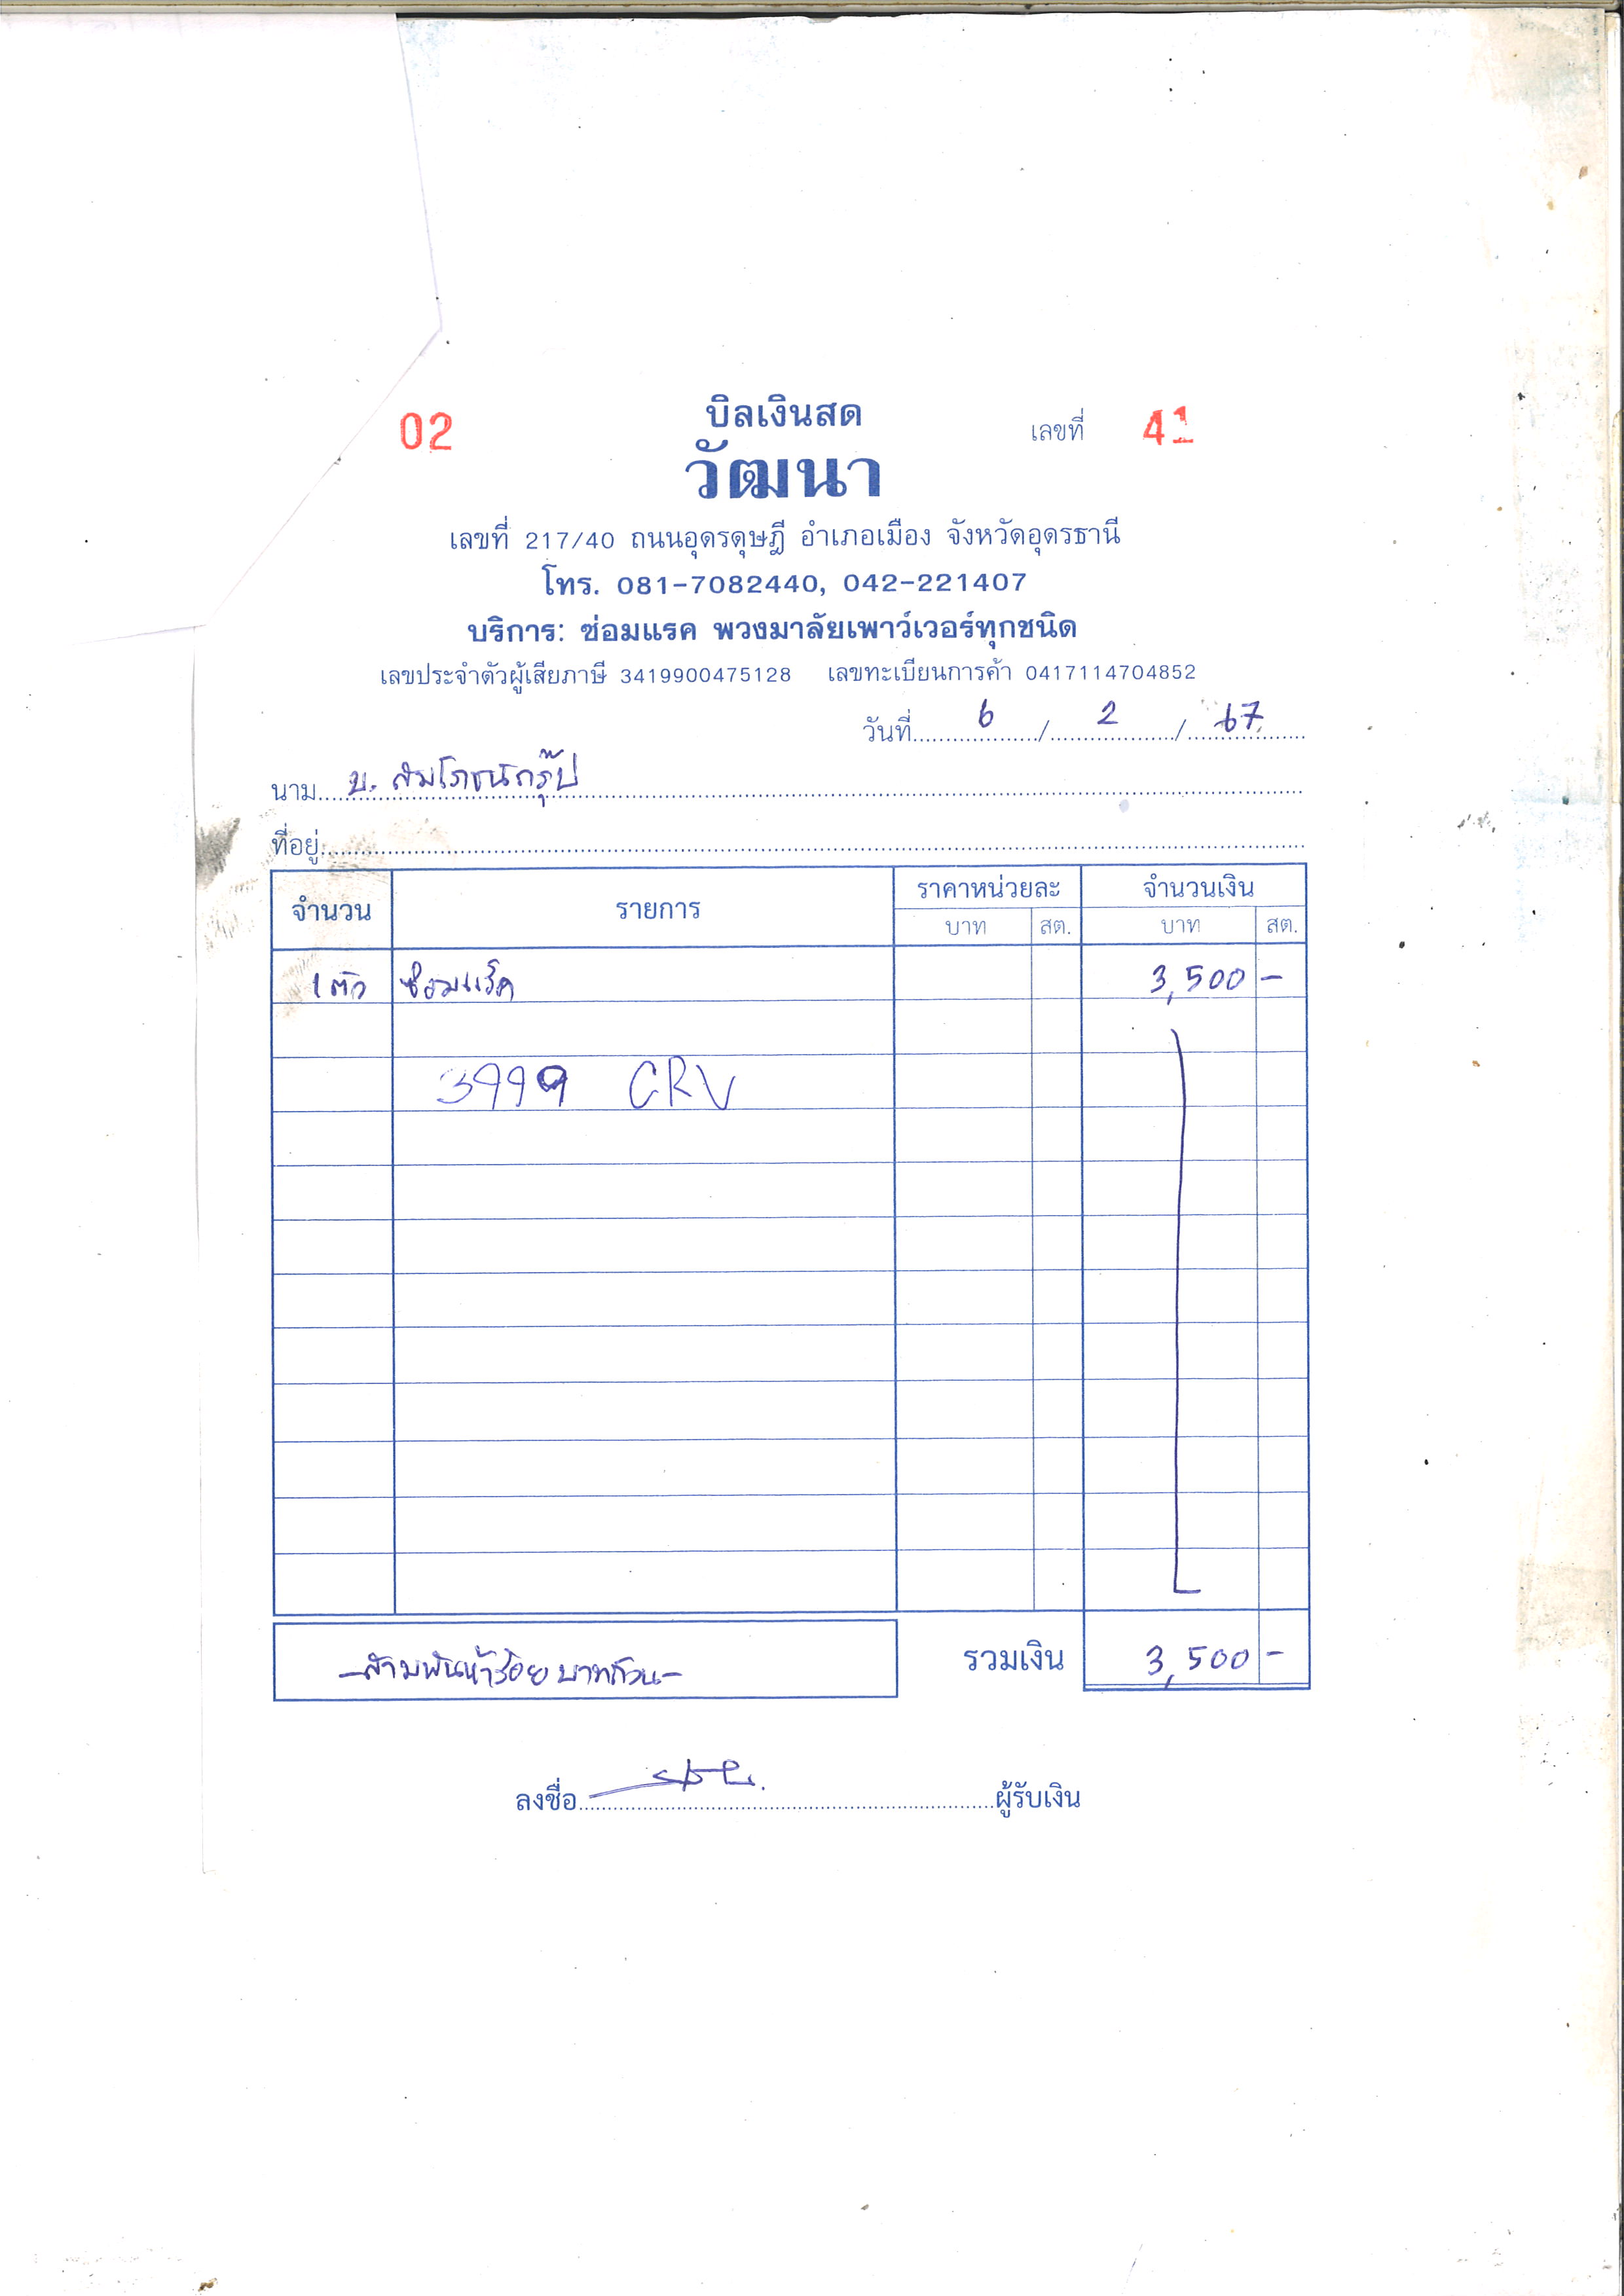 02 บิลเงินสด เลขที่ 41
วัฒนา
เลขที่ 217/40 ถนนอุดรดุษฎี อำเภอเมือง จังหวัดอุดรธานี
โทร. 081-7082440, 042-221407
บริการ: ซ่อมแรค พวงมาลัยเพาว์เวอร์ทุกชนิด
เลขประจำตัวผู้เสียภาษี 3419900475128 เลขทะเบียนการค้า 0417114704852
วันที่ 6 / 2 / 67
นาม บ. สัมโภชน์กรุ๊ป
ที่อยู่
จำนวน รายการ ราคาหน่วยละ จำนวนเงิน
บาท สต. บาท สต.
1 ตัว ซ่อมแร็ค 3,500 -
3999 CRV
-สามพันห้าร้อยบาทถ้วน- รวมเงิน 3,500 -
ลงชื่อ ผู้รับเงิน